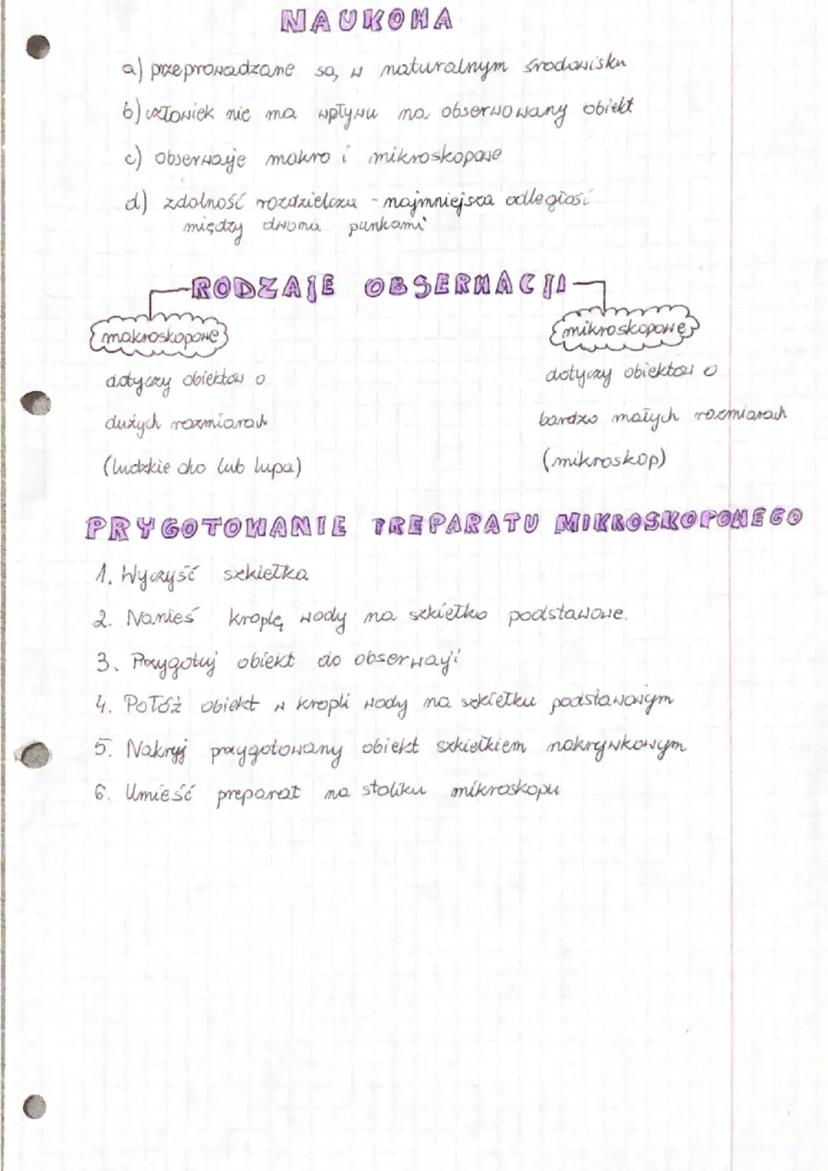 NAUKOWA
a) przeprowadzane są w naturalnym środowisku
b) człowiek nie ma wpływu na obserwowany obiekt
c) obserwacje makro i mikroskopowe
d) zdolność rozdzielcza - najmniejsza odległość
między dwoma punkami
RODZAJE OBSERWACJI
makroskopowe
dotyczy obiektów o
dużych rozmiarach
(ludzkie oko lub lupa)
mikroskopowe
dotyczy obiektów o
bardzo małych rozmiarach
(mikroskop)
PRYGOTOWANIE PREPARATU MIKROSKOPOWEGO
1. Wyczyść szkiełka
2. Nanieś kroplę wody na szkiełko podstawowe.
3. Przygotuj obiekt do obserwacji
4. Połóż obiekt w kropli wody na szkiełku podstawowym
5. Nakryj przygotowany obiekt szkiełkiem nakrywkowym
6. Umieść preparat na stoliku mikroskopu